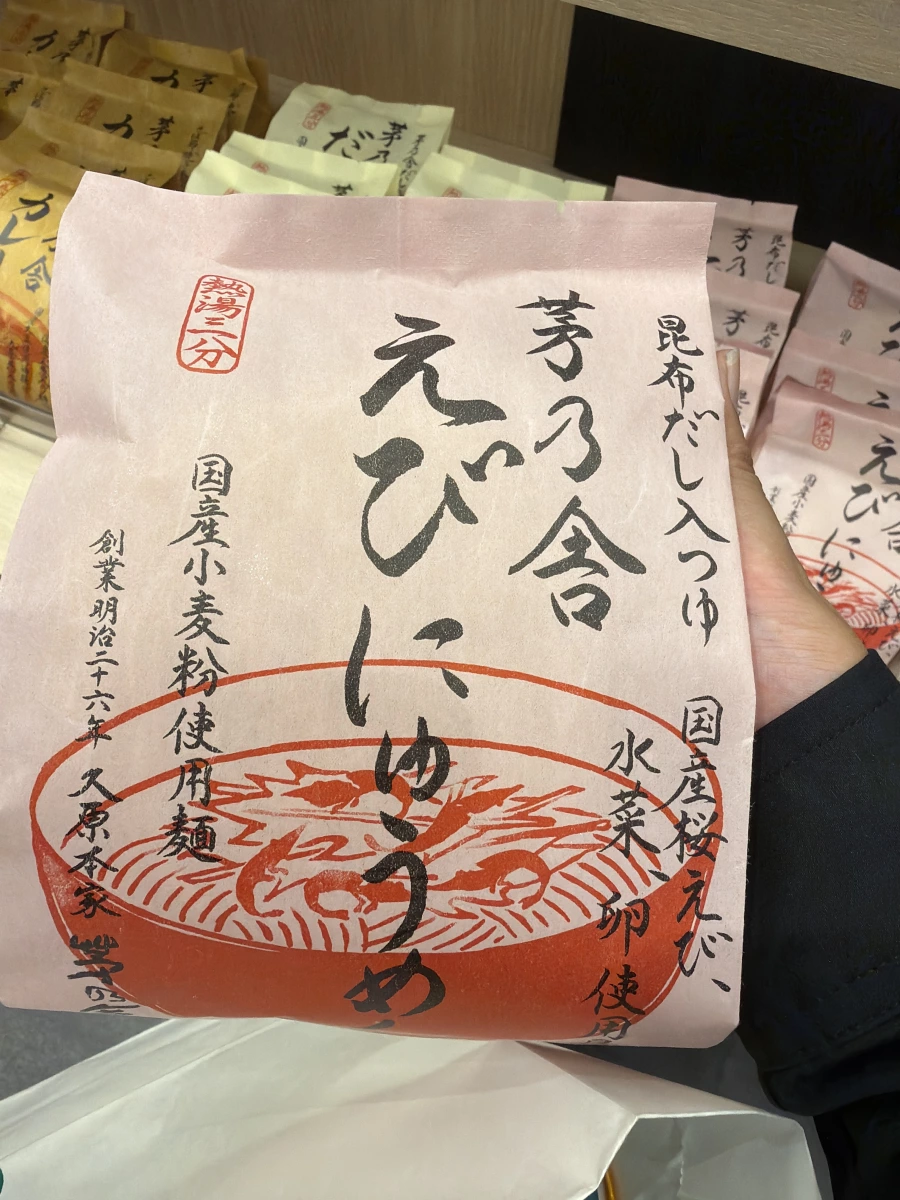 昆布だし入つゆ 国産桜えび、
水菜、卵使用
茅乃舎
えびにゅうめ
熱湯二分
国産小麦粉使用麺
創業明治二十六年 久原本家 茅乃舎
茅乃
だ
茅乃
昆布だし
茅乃
昆布
えびにゅ
国産小麦粉
カ
茅
カ
茅
カレ
舎